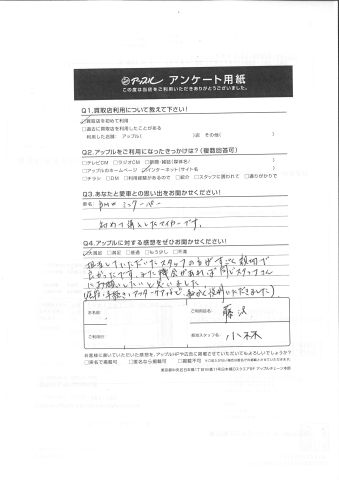 アップル アンケート用紙
この度は当店をご利用いただきありがとうございました。
Q1.買取店利用について教えて下さい!
買取店を初めて利用
□過去に買取店を利用したことがある
利用した店舗: アップル( )店 その他( )
Q2.アップルをご利用になったきっかけは?(複数回答可)
□テレビCM □ラジオCM □新聞・雑誌(媒体名: )
□アップルのホームページ インターネット(サイト名 )
□チラシ □DM □利用経験があるので □紹介 □スタッフに誘われて □通りがかりで
Q3.あなたと愛車との思い出をお聞かせください!
車名: BMW ミニクーパー
初めて購入したマイカーです。
Q4.アップルに対する感想をぜひお聞かせください!
大満足 □満足 □普通 □もう少し □不満
担当していただいたスタッフの方がすごく親切で
良かったです。また機会があれば同じスタッフさん
にお願いしたいと思いました。
お名前
ご利用店名:
藤沢
ご利用日
担当スタッフ名:
小林
お客様に書いていただいた感想を、アップルHPや広告に掲載させていただいてもよろしいでしょうか?
□実名で掲載可 □匿名なら掲載可 □掲載不可